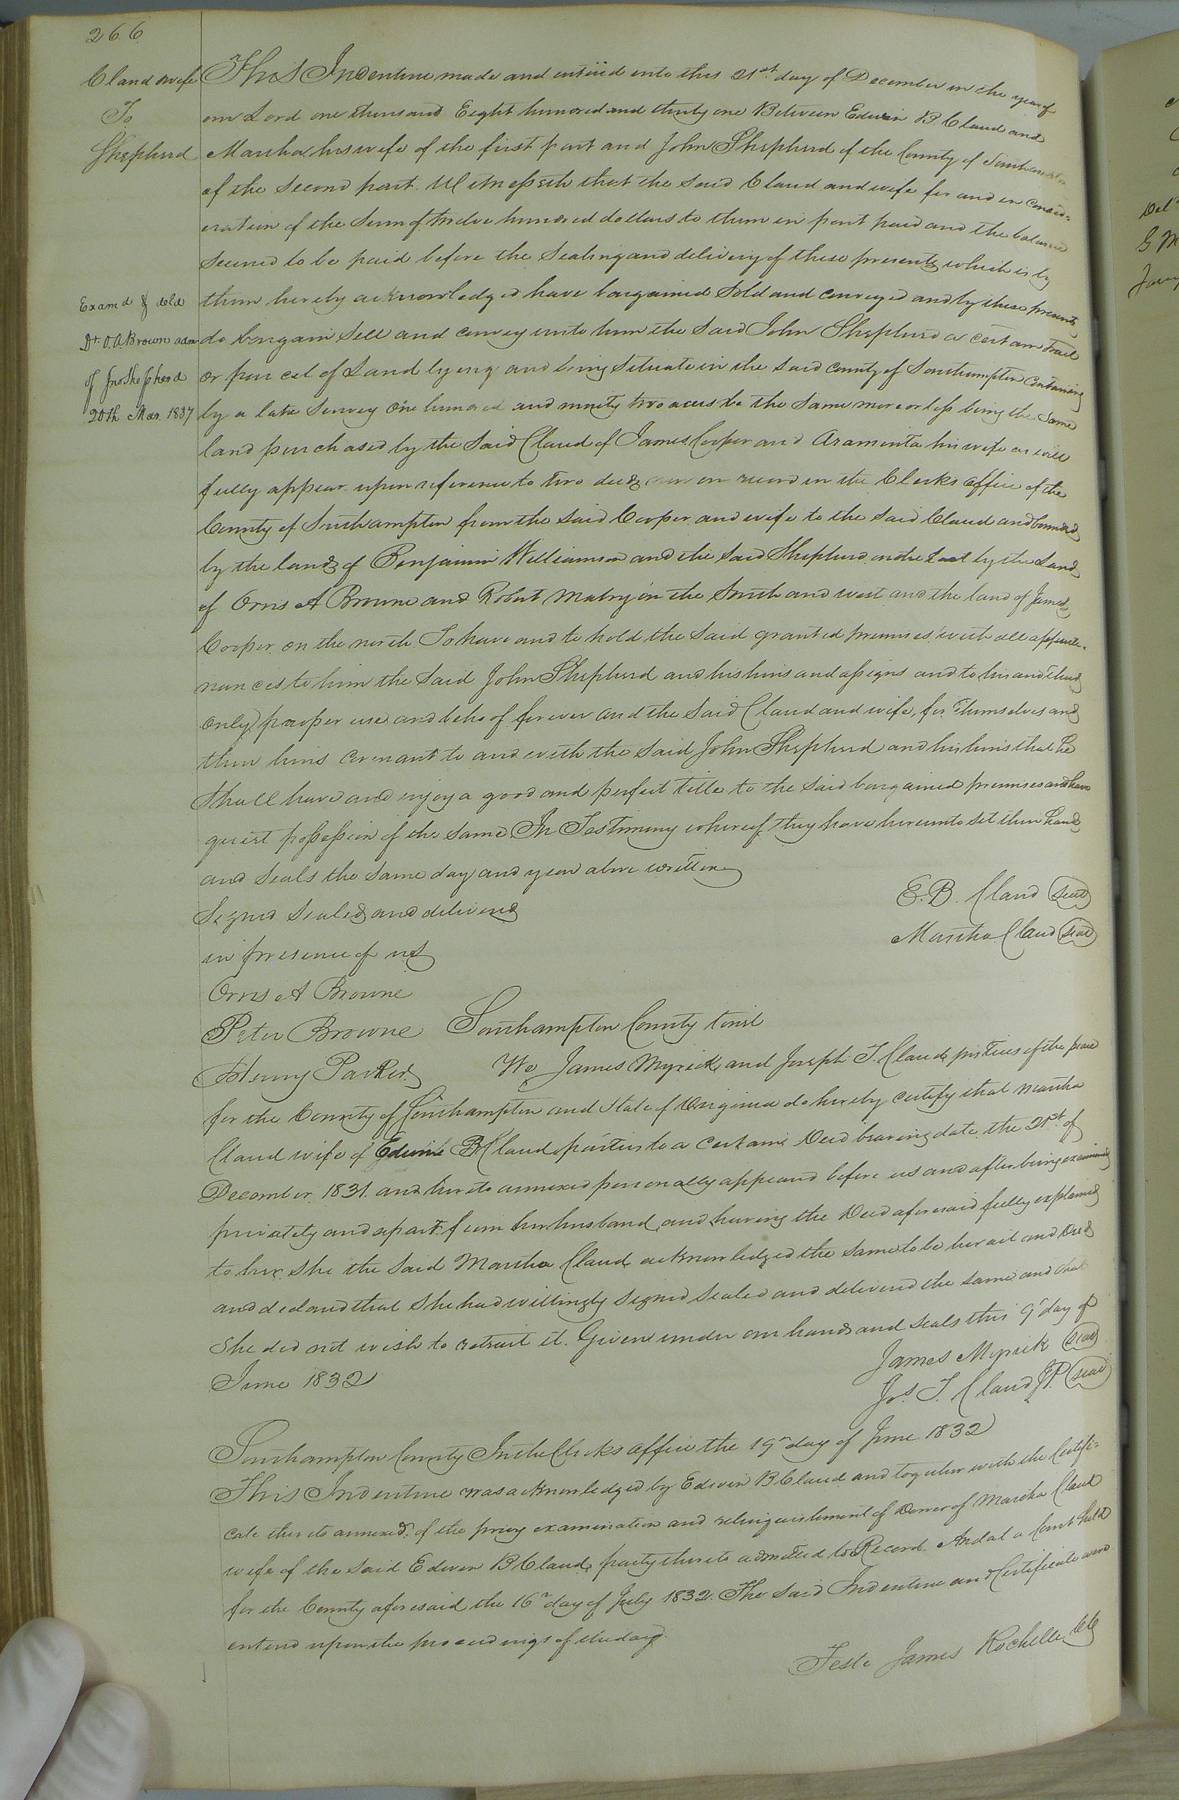 266
Claud & wife
To
Shepherd
This Indenture made and entered into this 21st day of December in the year of
our Lord one thousand Eight hundred and thirty one Between Edwin B. Claud and
Martha his wife of the first part and John Shepherd of the County of Southampton
of the Second part. Witnesseth that the said Claud and wife for and in consid-
eration of the Sum of twelve hundred dollars to them in part paid and the balance
secured to be paid before the Sealing and delivery of these presents which is by
Exam'd & deld
Dr. O. A Brown adm
of Jno Shepherd
20th Mar. 1837
them hereby acknowledged have bargained Sold and conveyed and by these presents
do bargain Sell and convey unto him the said John Shepherd a certain Tract
or parcel of Land lying and being Situate in the said County of Southampton Containing
by a late Survey One hundred and ninety two acres be the Same more or less being the Same
land purchased by the Said Claud of James Cooper and Araminta his wife as will
fully appear upon reference to two deeds now on record in the Clerks office of the
County of Southampton from the said Cooper and wife to the said Claud and bounded
by the lands of Benjamin Williamson and the Said Shepherd on the East by the Lands
of Orris A Browne and Robert Mabry on the South and west and the land of James
Cooper on the north To have and to hold the Said granted premises with all appurte-
nances to him the Said John Shepherd and his heirs and assigns and to his and their
only proper use and behoof forever and the Said Claud and wife, for Themselves and
their heirs covenant to and with the Said John Shepherd and his heirs that he
Shall have and enjoy a good and perfect title to the Said bargained premises and have
quiet possession of the same In Testimony whereof they have hereunto set their hands
and Seals the Same day and year above written
Signed Sealed and delivered
E. B. Claud (seal)
in presence of us
Martha Claud (seal)
Orris A Browne
Peter Browne
Henry Parker
Southampton County towit
We James Myrick and Joseph T. Claud justices of the peace
for the County of Southampton and State of Virginia do hereby certify that Martha
Claud wife of Edwin B Claud parties to a certain Deed bearing date the 21st of
December 1831. and hereto annexed personally appeared before us and after being examined
privately and apart from her husband and having the Deed aforesaid fully explained
to her, She the Said Martha Claud acknowledged the same to be her act and deed
and declared that She had willingly Signed Sealed and delivered the same and that
She did not wish to retract it. Given under our hands and Seals this 9th day of
June 1832
James Myrick (seal)
Jos. T. Claud JP (seal)
Southampton County In the Clerks office the 19th day of June 1832
This Indenture was acknowledged by Edwin B Claud and together with the Certifi-
cate thereto annexed, of the privy examination and relinquishment of Dower of Martha Claud
wife of the Said Edwin B Claud, party thereto admitted to Record. And at a Court held
for the County aforesaid the 16th day of July 1832. The Said Indenture and Certificate were
entered upon the proceedings of the day.
Teste James Rochelle CC